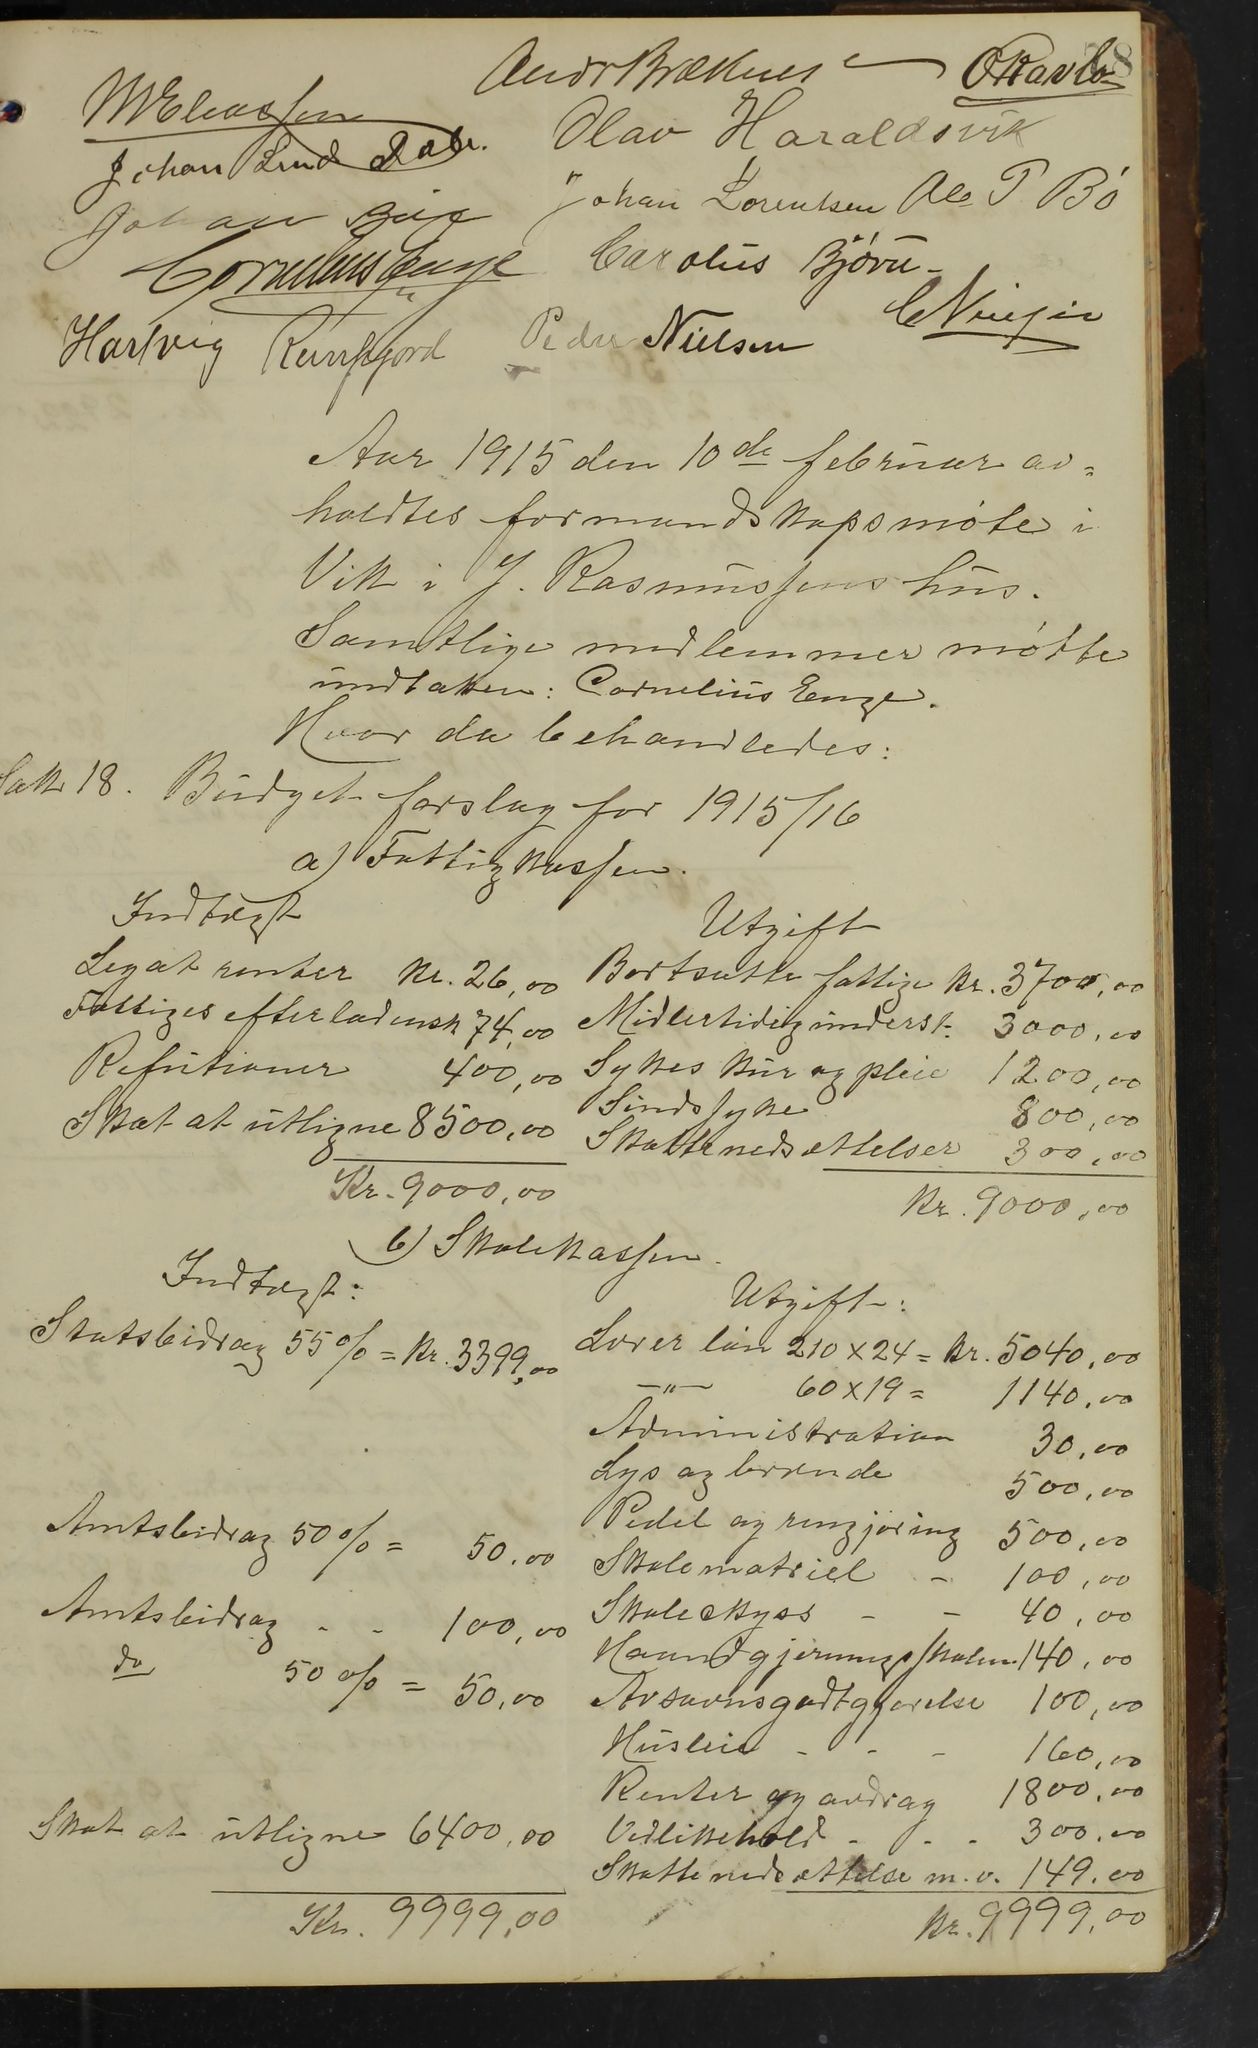 Andr Brækhus O Ravlo
M Eliassen
Johan Lind Dahl. Olav Haraldsvik
Johan Johan Lorentsen Ole P Bö
Cornelius Enge Carolus Björu
Hartvig Peder Nielsen
Aar 1915 den 10de februar av=
holdtes formandskapsmöte i
Vik i J. Rasmussens hus.
Samtlige medlemmer mötte
undtaken: Cornelius Enge.
Hvor da behandledes:
Sak 18. Budget forslag for 1915/16
a) Fattigkassen.
Indtægt Utgift
Legat renter kr. 26,00 Bortsatte fattige kr. 3700,00
Fattiges efterladensk 74,00 Midlertidig underst. 3000,00
Refutioner 400,00 Sykes kur og pleie 1200,00
Sindssyke 800,00
Skat at utligne 8500,00 Skattenedsættelser 300,00
Kr. 9000,00 kr. 9000,00
b) Skolekassen.
Indtægt: Utgift:
Statsbidrag 55% = kr. 3399,00 Lærer lön 210 x 24 = kr. 5040,00
—"— 60 x 19 = 1140,00
Administration 30,00
Lys og brænde 500,00
Amtsbidrag 50% = 50,00 Pedel og rengjöring 500,00
Skolematriel - 100,00
Amtsbidrag - - 100,00 Skoleskyss - - 40,00
do 50% = 50,00 Haandgjerningsskolen 140,00
Avsavnsgodtgjörelse 100,00
Husleie - - - 160,00
Renter og avdrag 1800,00
Skat at utligne 6400,00 Vedlikehold - - - 300,00
Skattenedsættelse m.v. 149.00
Kr. 9999,00 kr. 9999,00